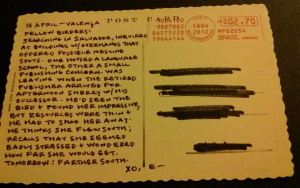 18 APRIL - VALENÇA
POST CARD
FELLOW BIRDERS:
SEARCHING IN SALVADOR, INQUIRED
AT BUILDINGS W/OVERHANGS THAT
OFFERED POSSIBLE NESTING
SPOTS. ONE HOUSED A LANGUAGE
SCHOOL, THE OTHER A SMALL
PUBLISHING CONCERN. WAS
LEAVING WHEN THE RETIRED
PUBLISHER ARRIVED FOR
AFTERNOON SHERRY W/HIS
SUCCESSOR. HE'D SEEN THE
BIRD & FOUND HER IMPRESSIVE,
BUT RESOURCES WERE THIN &
HE HAD TO SHOO HER AWAY.
HE THINKS SHE FLEW SOUTH;
RECALLS THAT SHE SEEMED
BADLY STRESSED & WONDERED
HOW FAR SHE WOULD GET.
TOMORROW: FARTHER SOUTH.
XO, E—
1804
2012
02.70
MF02054